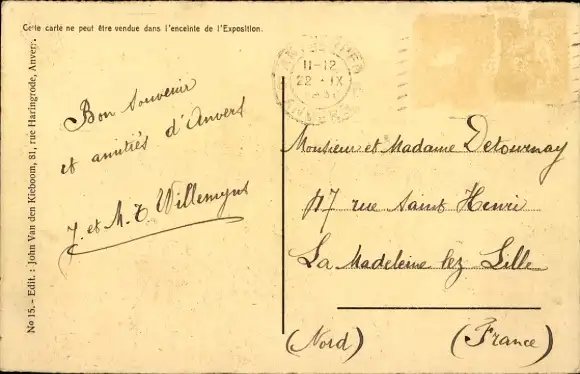 Cette carte ne peut être vendue dans l'enceinte de l'Exposition.
11-12
22 - IX
Bon souvenir
et amitiés d'Anvers
J. et M. T. Willemyns
Monsieur et Madame Detournay
117 rue Saint Henri
La Madeleine lez Lille
(Nord) (France)
No 15. - Edit. : John Van den Kieboom, 81, rue Haringrode, Anvers.